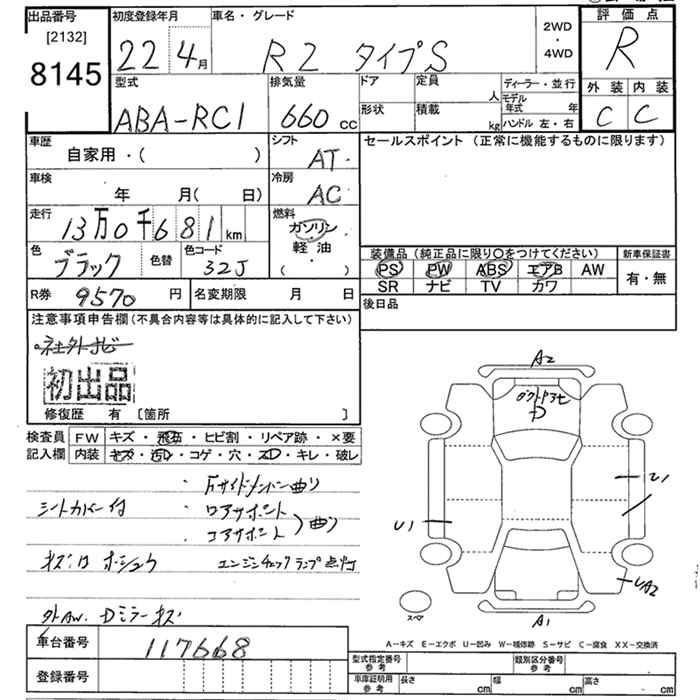 出品番号 初度登録年月 車名・グレード 2WD・4WD 評価点
[2132]
8145 22 4月 R2 タイプS R
型式 排気量 ドア 定員 人 ディーラー・並行 外装 内装
ABA-RC1 660cc 形状 積載 kg モデル年式 年 ハンドル 左・右 C C
車歴 シフト セールスポイント (正常に機能するものに限ります)
自家用・( ) AT
車検 冷房
年 月( 日) AC
走行 燃料
13万0千681km ガソリン
色 色替 色コード 軽油・
ブラック 32J ( )
装備品 (純正品に限り○をつけてください) 新車保証書
PS PW ABS エアB AW 有・無
SR ナビ TV カワ
R券 9570円 名変期限 月 日 後日品
注意事項申告欄 (不具合内容等は具体的に記入して下さい)
社外ナビ
初出品
修復歴 有 [箇所 ]
検査員 FW キズ・飛石・ヒビ割・リペア跡・×要
記入欄 内装 キズ・汚レ・コゲ・穴・スレ・キレ・破レ
シートカバー付
・ロアサポート
コアサポート 曲り
エンジンチェックランプ点灯
外AW. Dミラーキズ
A2
U1
U1
UA2
A1
スペア
A=キズ E=エクボ U=凹み W=補修跡 S=サビ C=腐食 XX=交換済
車台番号 117668
登録番号
型式指定番号 参考 類別区分番号 参考
車庫証明用 参考 長さ cm 幅 cm 高さ cm